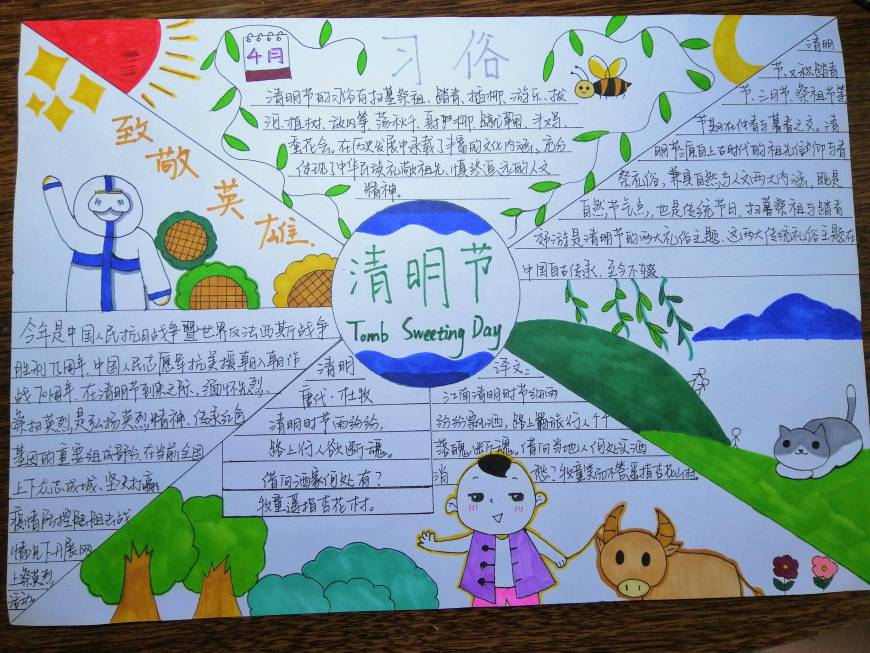 4月
习俗
清明节的习俗有扫墓祭祖、踏青、插柳、游乐、拔
河、植树、放风筝、荡秋千、射柳、蹴鞠、斗鸡、
蚕花会。在历史发展中承载了丰富的文化内涵，充分
体现了中华民族礼敬祖先、慎终追远的人文
精神。
清明
节，又称踏青
节、三日节、祭祖节等
节期在仲春与暮春之交。清
明节源自上古时代的祖先信仰与春
祭礼俗，兼具自然与人文两大内涵，既是
自然节气点，也是传统节日，扫墓祭祖与踏青
郊游是清明节的两大礼俗主题，这两大传统礼俗主题在
中国自古传承，至今不辍。
致敬英雄
清明节
Tomb Sweeting Day
今年是中国人民抗日战争暨世界反法西斯战争
胜利75周年，中国人民志愿军抗美援朝入朝作
战70周年，在清明节到来之际，缅怀先烈，
祭扫英烈，是弘扬英烈精神、传承红色
基因的重要组成部分，在当前全国
上下众志成城，坚决打赢
疫情防控阻击战
情况下开展网
上祭英烈
活动。
清明
唐代·杜牧
清明时节雨纷纷，
路上行人欲断魂。
借问酒家何处有？
牧童遥指杏花村。
译文：
江南清明时节细雨
纷纷飘洒，路上羁旅行人个个
落魄断魂。借问当地人何处买酒
消愁？牧童笑而不答遥指杏花山村。